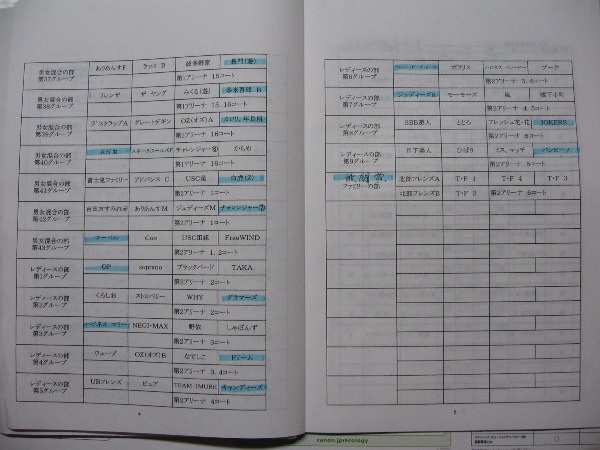 男女混合の部 第37グループ ありあんすF ラッコ B 波多野家 長門(遊)
第1アリーナ 15コート
男女混合の部 第38グループ フレンザ ザ ヤング みくる(遊) 多米吾郎 B
第1アリーナ 15. 16コート
男女混合の部 第39グループ グレートデギン OZ(オズ)A
第1アリーナ 16コート
男女混合の部 第40グループ チャレンジャー④ かもめ
第1アリーナ 16コート
男女混合の部 第41グループ 富士見ファミリー アドバンス C USC星 白虎(2)
第2アリーナ 1コート
男女混合の部 第42グループ ありあんすM ジュディーズM チャレンジャー②
第2アリーナ 1コート
男女混合の部 第43グループ マーベル Coo FreeWIND
第2アリーナ 1. 2コート
レディースの部 第1グループ OP soprano ブラックバード TAKA
第2アリーナ 2コート
レディースの部 第2グループ くろしお ストロベリー WHY グラマーズ
第2アリーナ 2コート
レディースの部 第3グループ ハピネス マミー NEGI-MAX 野依 しゃぼんず
第2アリーナ 3コート
レディースの部 第4グループ ウェーブ OZ(オズ)B なでしこ ドリーム
第2アリーナ 3. 4コート
レディースの部 第5グループ UBフレンズ ピュア TEAM IMURE キャンディーズ
第2アリーナ 4コート
4
レディースの部 第6グループ ポラリス ハピネス ベービー ブーケ
第2アリーナ 3. 4コート
レディースの部 第7グループ ジュディーズR モーモーズ 風 城下小町
第2アリーナ 4. 5コート
レディースの部 第8グループ SBB美人 ととろ フレッシュ花・花 JOKERS
第2アリーナ 5コート
レディースの部 第9グループ 月下美人 ひばり ミス．マッチ バンビーノ
第2アリーナ 5コート
ファミリーの部 北部フレンズA T・F 1 T・F 4 T・F 3
北部フレンズB T・F 2 第2アリーナ 6コート
5
canon.jp/ecology